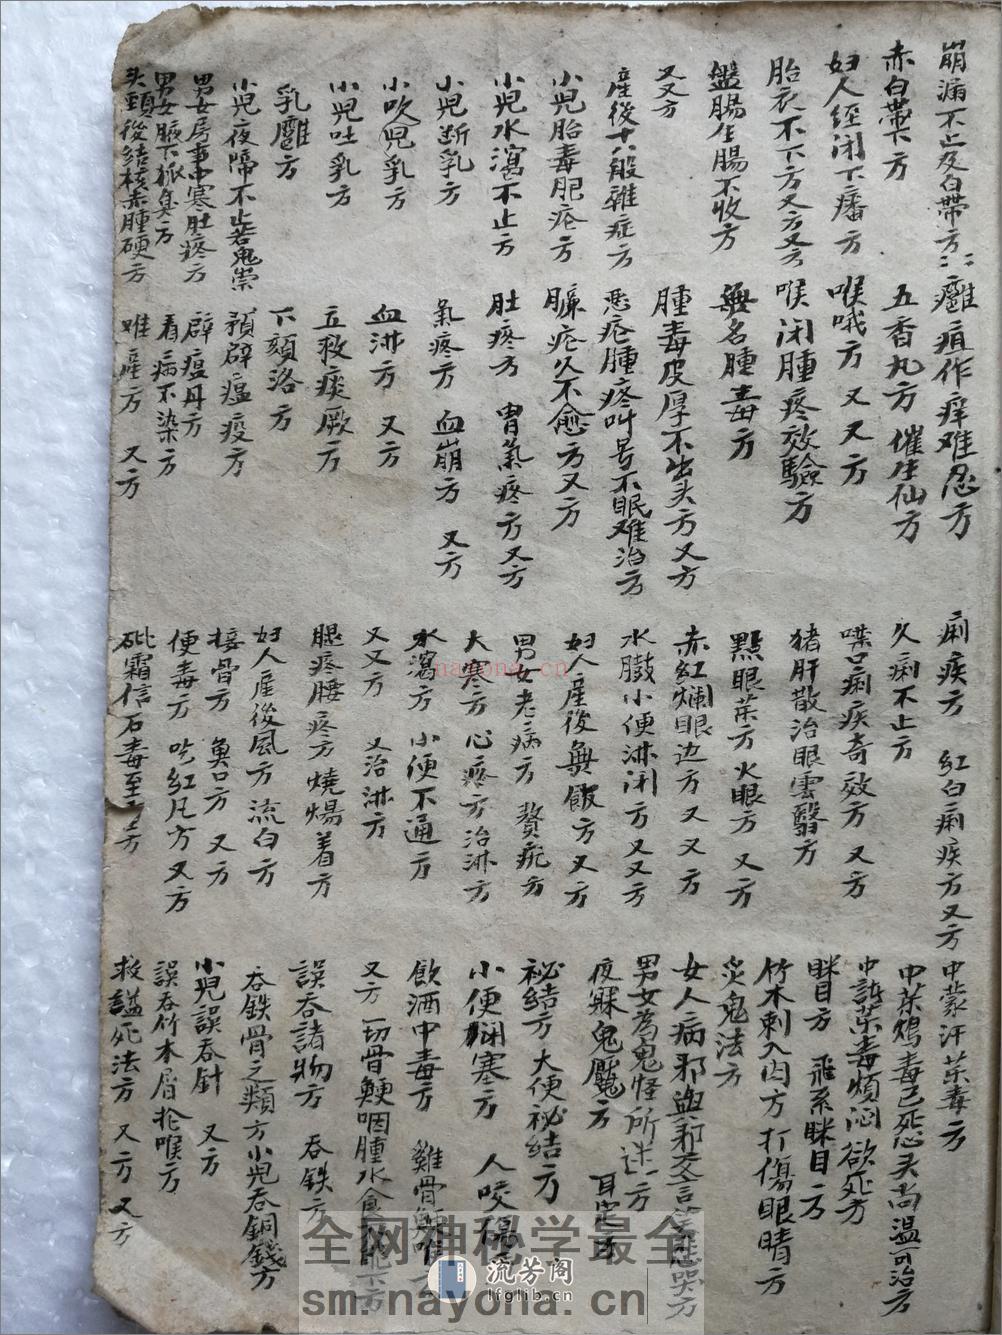 崩漏不止及白带方
赤白带下方
妇人经闭不
胎衣不下方又方又方
盤腸生腸不收方
又又方
產後十八般雜症方
小児胎毒肥疮方
小児水瀉不止方
小児断乳方
小吹児乳方
小児吐乳方
乳癰方
小児夜啼不止若鬼祟
男女房事中寒肚疼方
男女腋下狐臭方
头頸後結核赤腫硬方
癰疽作痒难忍方
五香丸方 催生仙方
喉哦方 又又方
喉闭腫疼效驗方
無名腫毒方
腫毒皮厚不出头方又方
恶疮腫疼叫号不眠难治方
臁疮久不愈方又方
肚疼方 胃氣疼方又方
氣疼方 血崩方 又方
血淋方 又方
立救痰厥方
下頦洛方
預辟瘟疫方
辟瘟丹方
看病不染方
难產方 又方
痢疾方 红白痢疾方又方
久痢不止方
噤口痢疾奇效方 又方
猪肝散治眼雲翳方
點眼茱方火眼方 又方
赤红爛眼边方又又方
水臌小便淋闭方又又方
妇人產後無飯方又方
男女老病方
大寒方心疼方治淋方
水瀉方 小便不通方
又又方 又治淋方
腿疼腰疼方燒煬着方
妇人產後風方流白方
接骨方 鱼口方 又方
便毒方 吃红凡方又方
砒霜信石毒至
中蒙汗茱毒方
中茱鴆毒已死心头尚温可治方
中諸茱毒煩闷欲死方
眯目方 飛系眯目方
竹木刺入肉方打傷眼睛方
災鬼法方
女人病邪與邪交言
男女為鬼怪所迷方
夜寐鬼魘方
祕結方大便祕结方
小便闭塞方 人咬
飲酒中毒方 雞骨
又方一切骨鯁咽腫水食
誤吞諸物方 吞鉄方
吞鉄骨之類方小児吞銅錢方
小児誤吞針 又方
誤吞竹木屑抡喉方
救縊死法方 又方又方
全网神秘学最全
sm.nayona.cn
nayona.cn
流芳阁
lfglib.cn